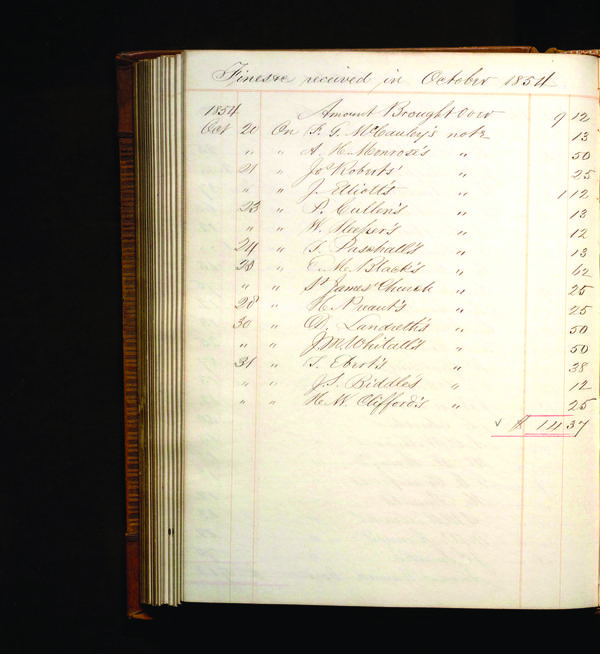 Fines &c received in October 1854
1854 Amount Brought Over 9 12
Oct 20 On F. G. McCauley's note 13
" " A. H. Monrose's " 50
21 " Jos Roberts' " 25
" " J. Elliott's " 1 12
23 " P. Cullen's " 13
" " W. Sleeper's " 12
24 " S. Paschall's " 13
" C. M. Black's " 62
" " St James Church " 25
28 " H. " 25
30 " D. Landreth's " 50
" " J. M. Whitall's " 50
31 " T. Ebert's " 38
" " J. S. Biddle's " 12
" " H. W. Clifford's " 25
✓ $ 14 37